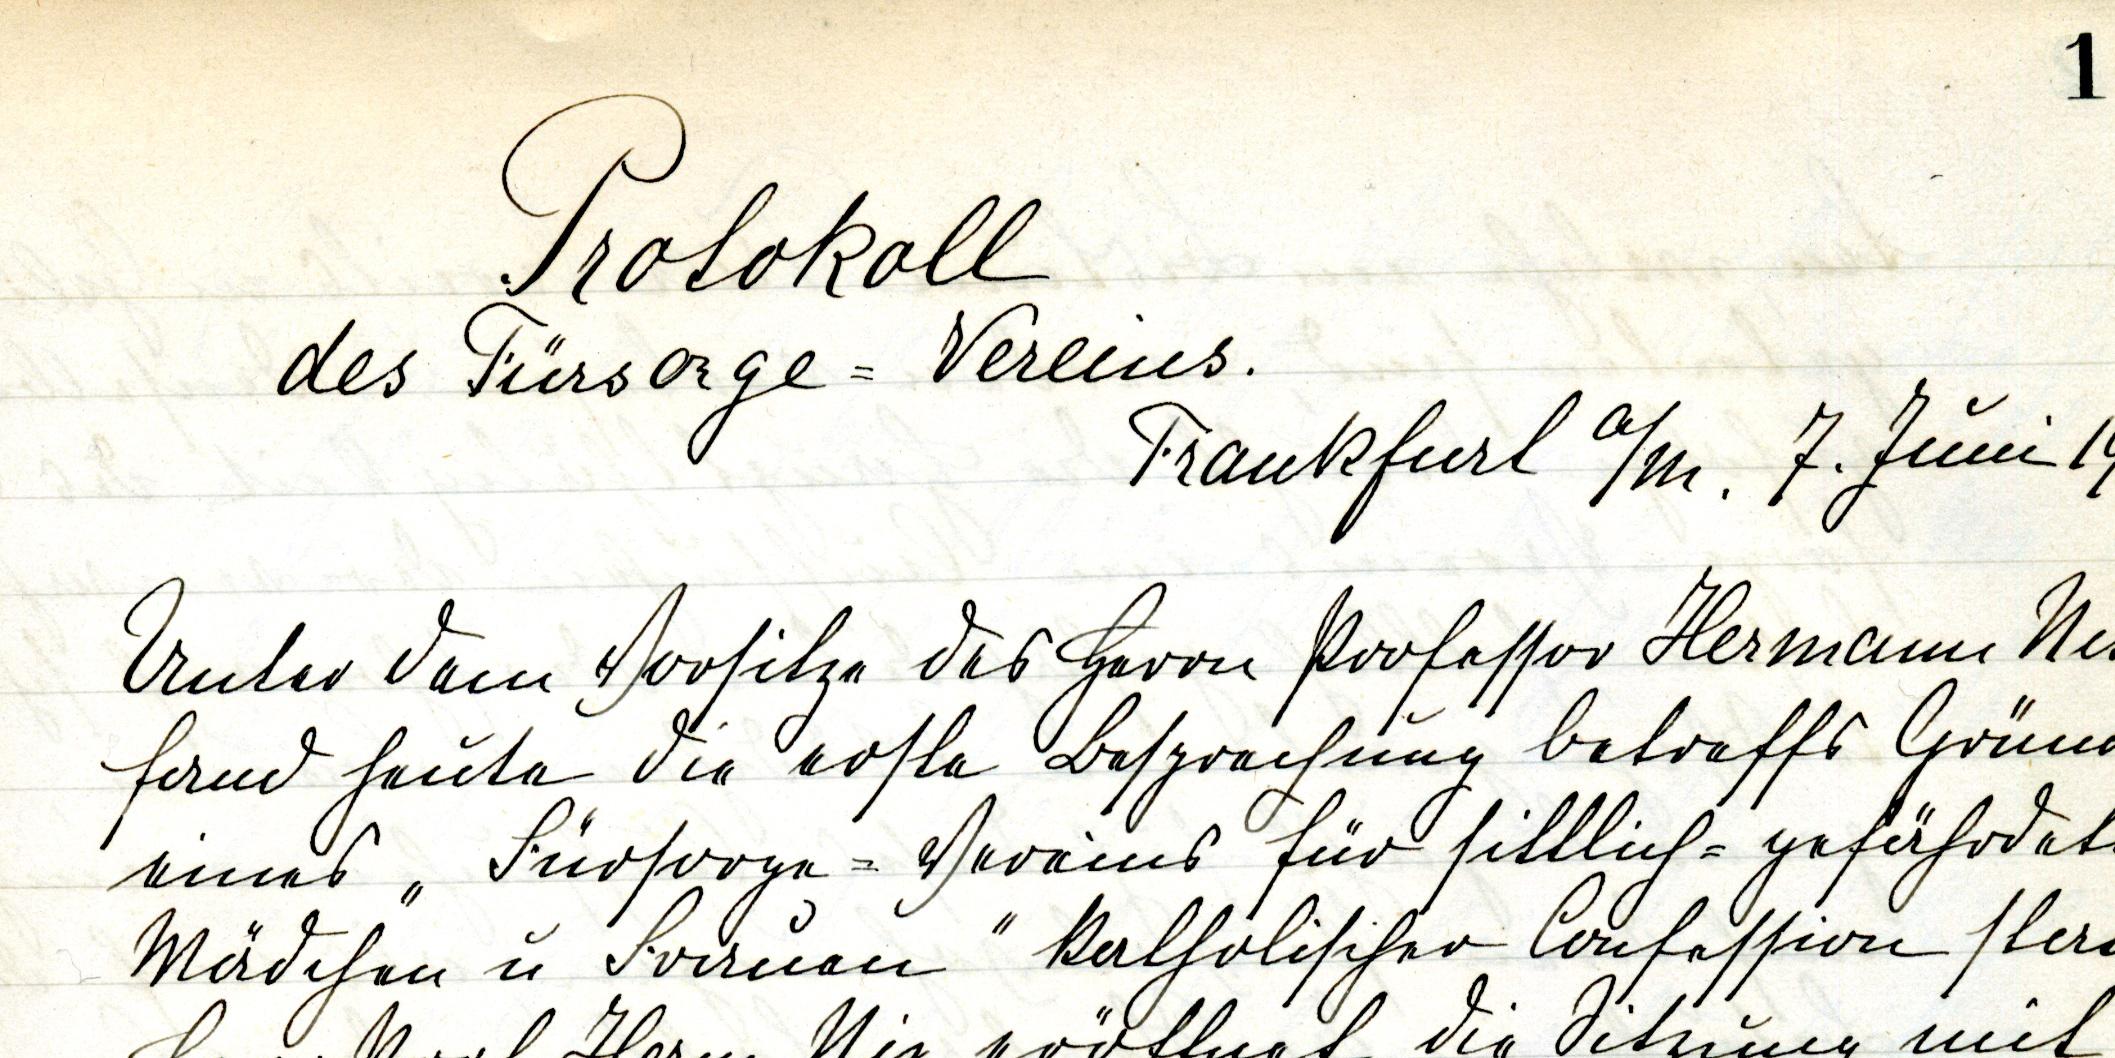 1
Protokoll
des Fürsorge= Vereins.
Frankfurt a/M. 7. Juni 19
Unter dem Vorsitze des Herrn Professor Hermann
fand heute die erste Besprechung betreffs Gründ
eines „Fürsorge= Vereins für sittlich= gefährdete
Mädchen u Frauen" katholischer Confession
Herm eröffnet die Sitzung mit